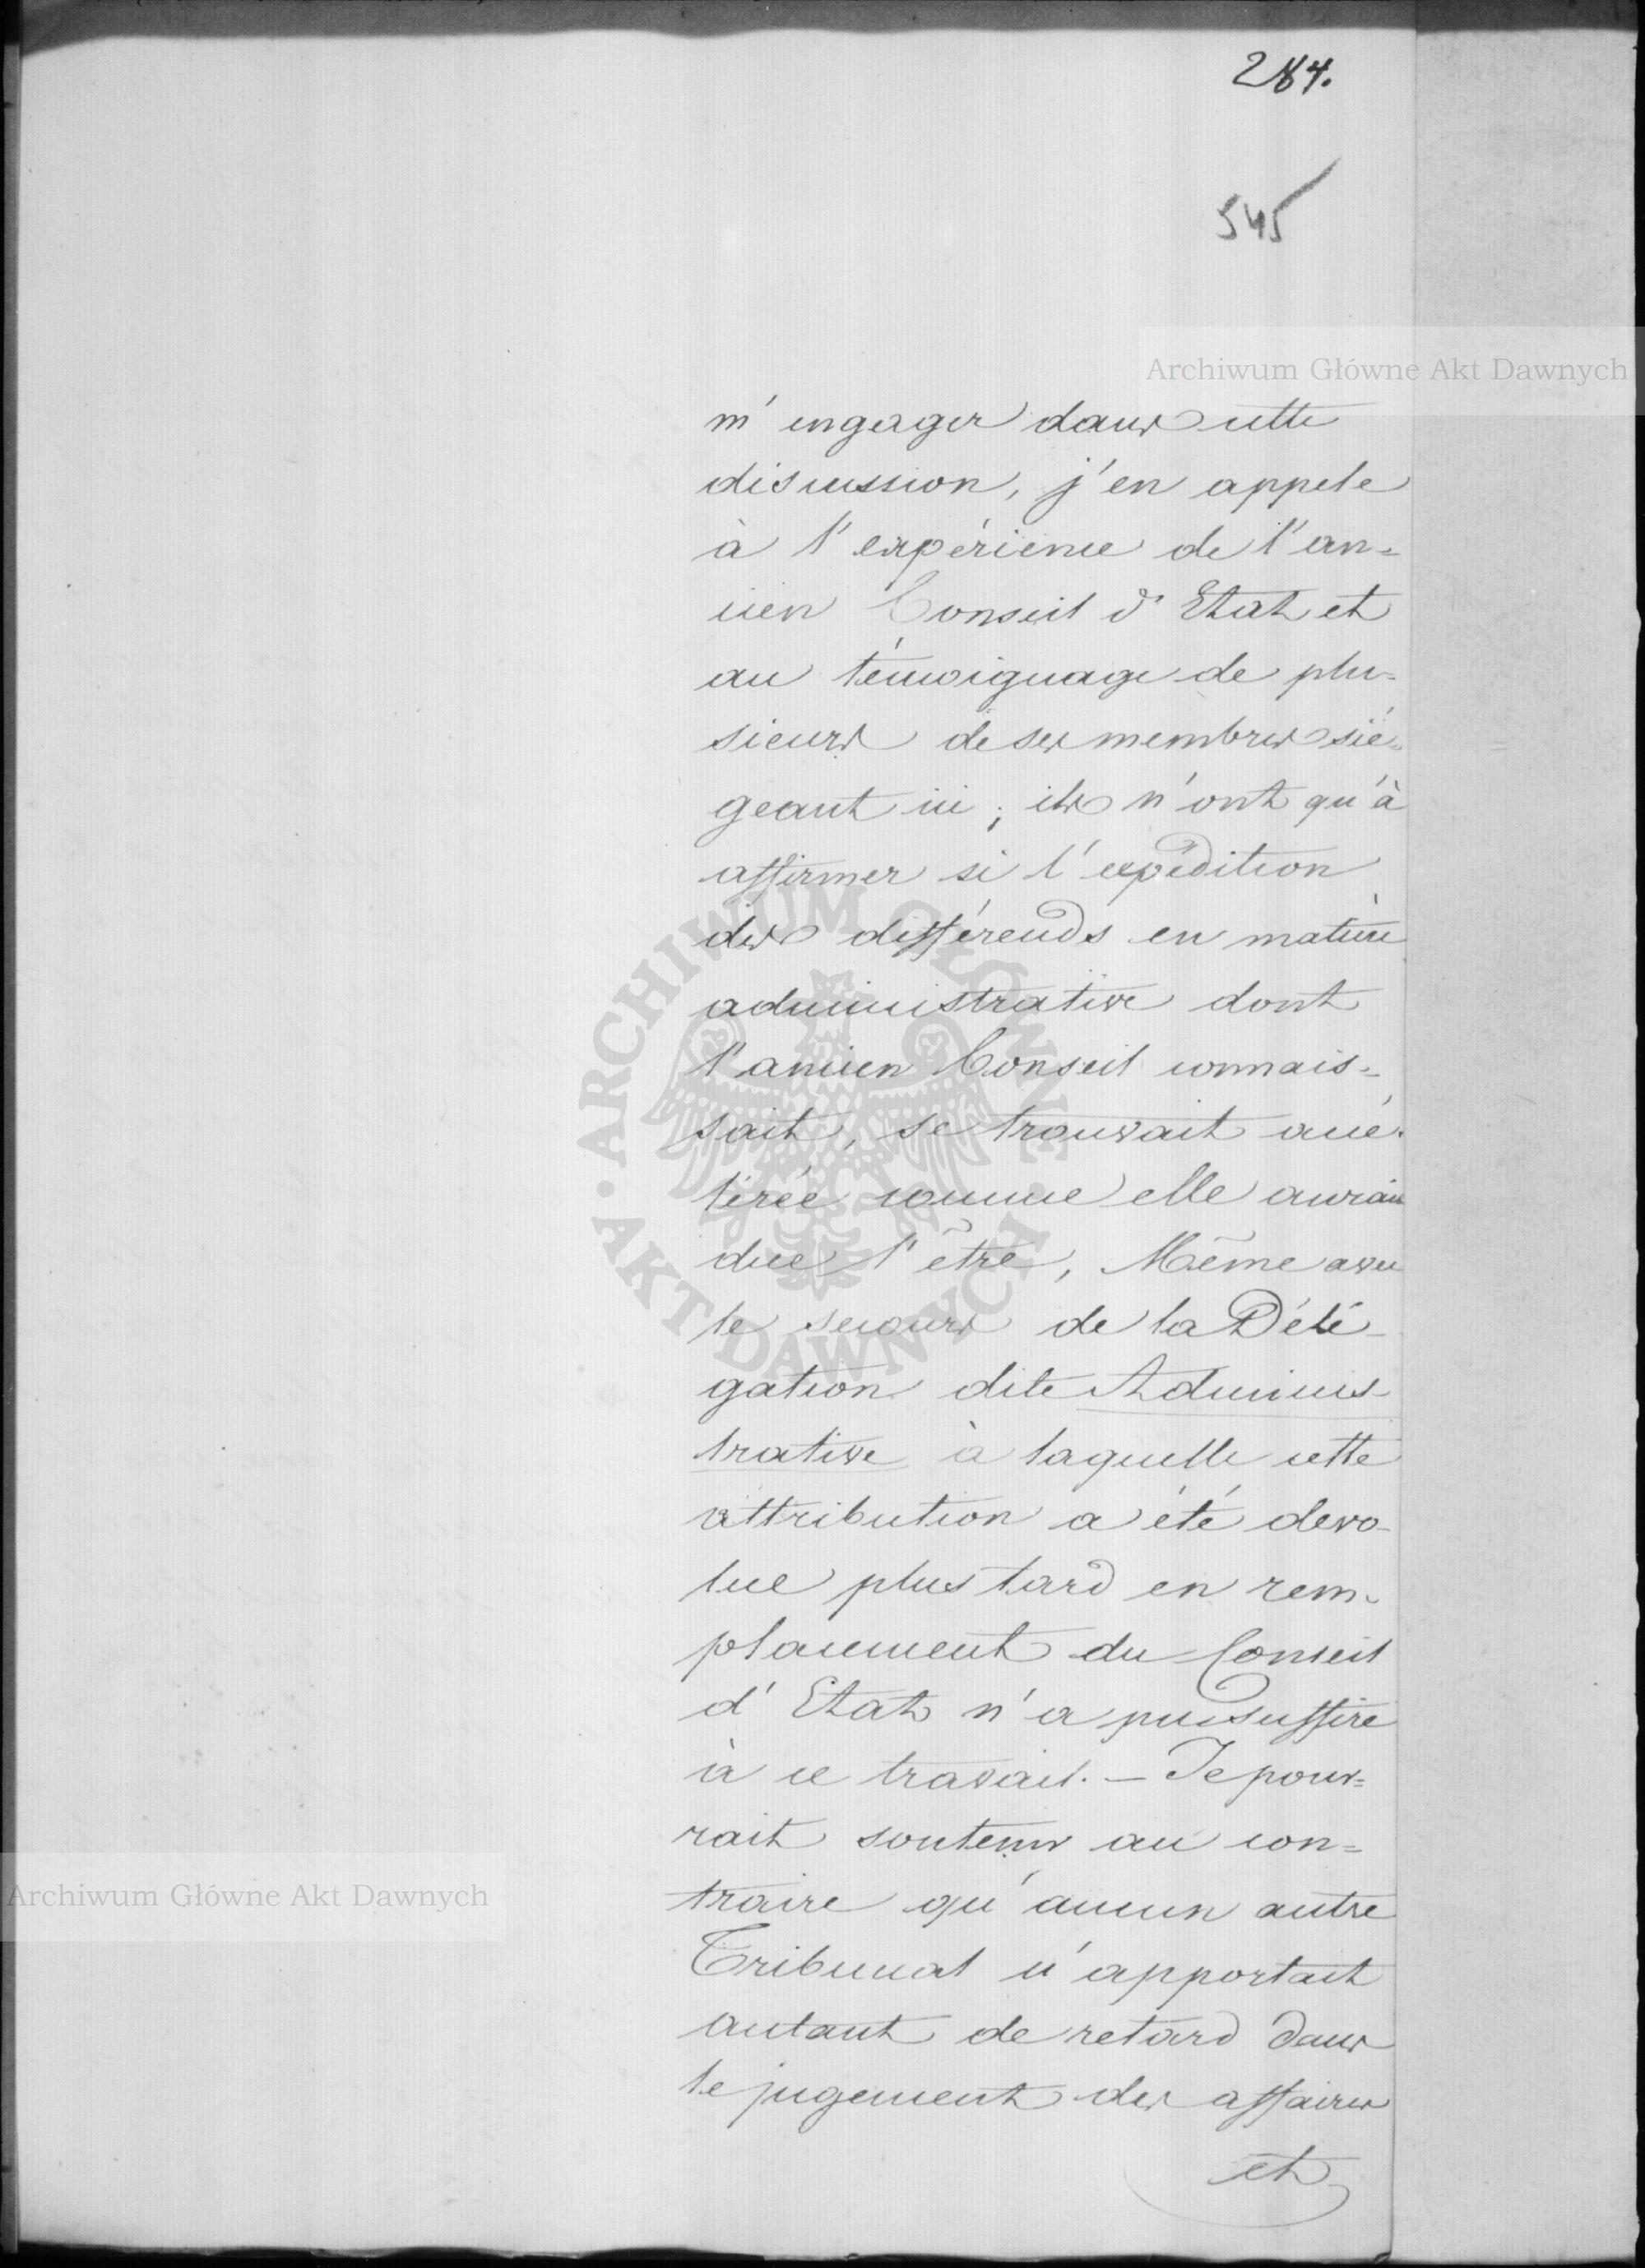 284.
545
Archiwum Główne Akt Dawnych
m'engager dans cette
discussion, j'en appele
à l'expérience de l'an=
cien Conseil d'Etat et
au témoignage de plu=
sieurs de ses membres sié=
geant ici; ils n'ont qu'à
affirmer si l'expédition
des différends en matière
administrative dont
l'ancien Conseil connais=
sait, se trouvait accé=
lérée comme elle aurait
due l'être, Même avec
le secours de la Délé-
gation dite Adminis-
trative à laquelle cette
attribution a été devo-
lue plus tard en rem-
placement du Conseil
d'Etat n'a pu suffire
à ce travail. — Je pour=
rait soutenir au con=
traire qu'aucun autre
Archiwum Główne Akt Dawnych
Tribunal n'apportait
autant de retard dans
le jugement des affaires
et
ARCHIWUM GŁÓWNE
AKT DAWNYCH